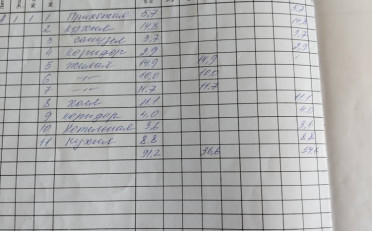 1 1 1 Прихожая 5,7 5,7
2 кухня 14,8 14,8
3 санузел 3,7 3,7
4 коридор 2,9 2,9
5 жилая 14,9 14,9
6 —"— 10,0 10,0
7 —"— 11,7 11,7
8 холл 11,1 11,1
9 коридор 4,0 4,0
10 Котельная 3,6 3,6
11 Кухня 8,8 8,8
91,2 36,6 54,6